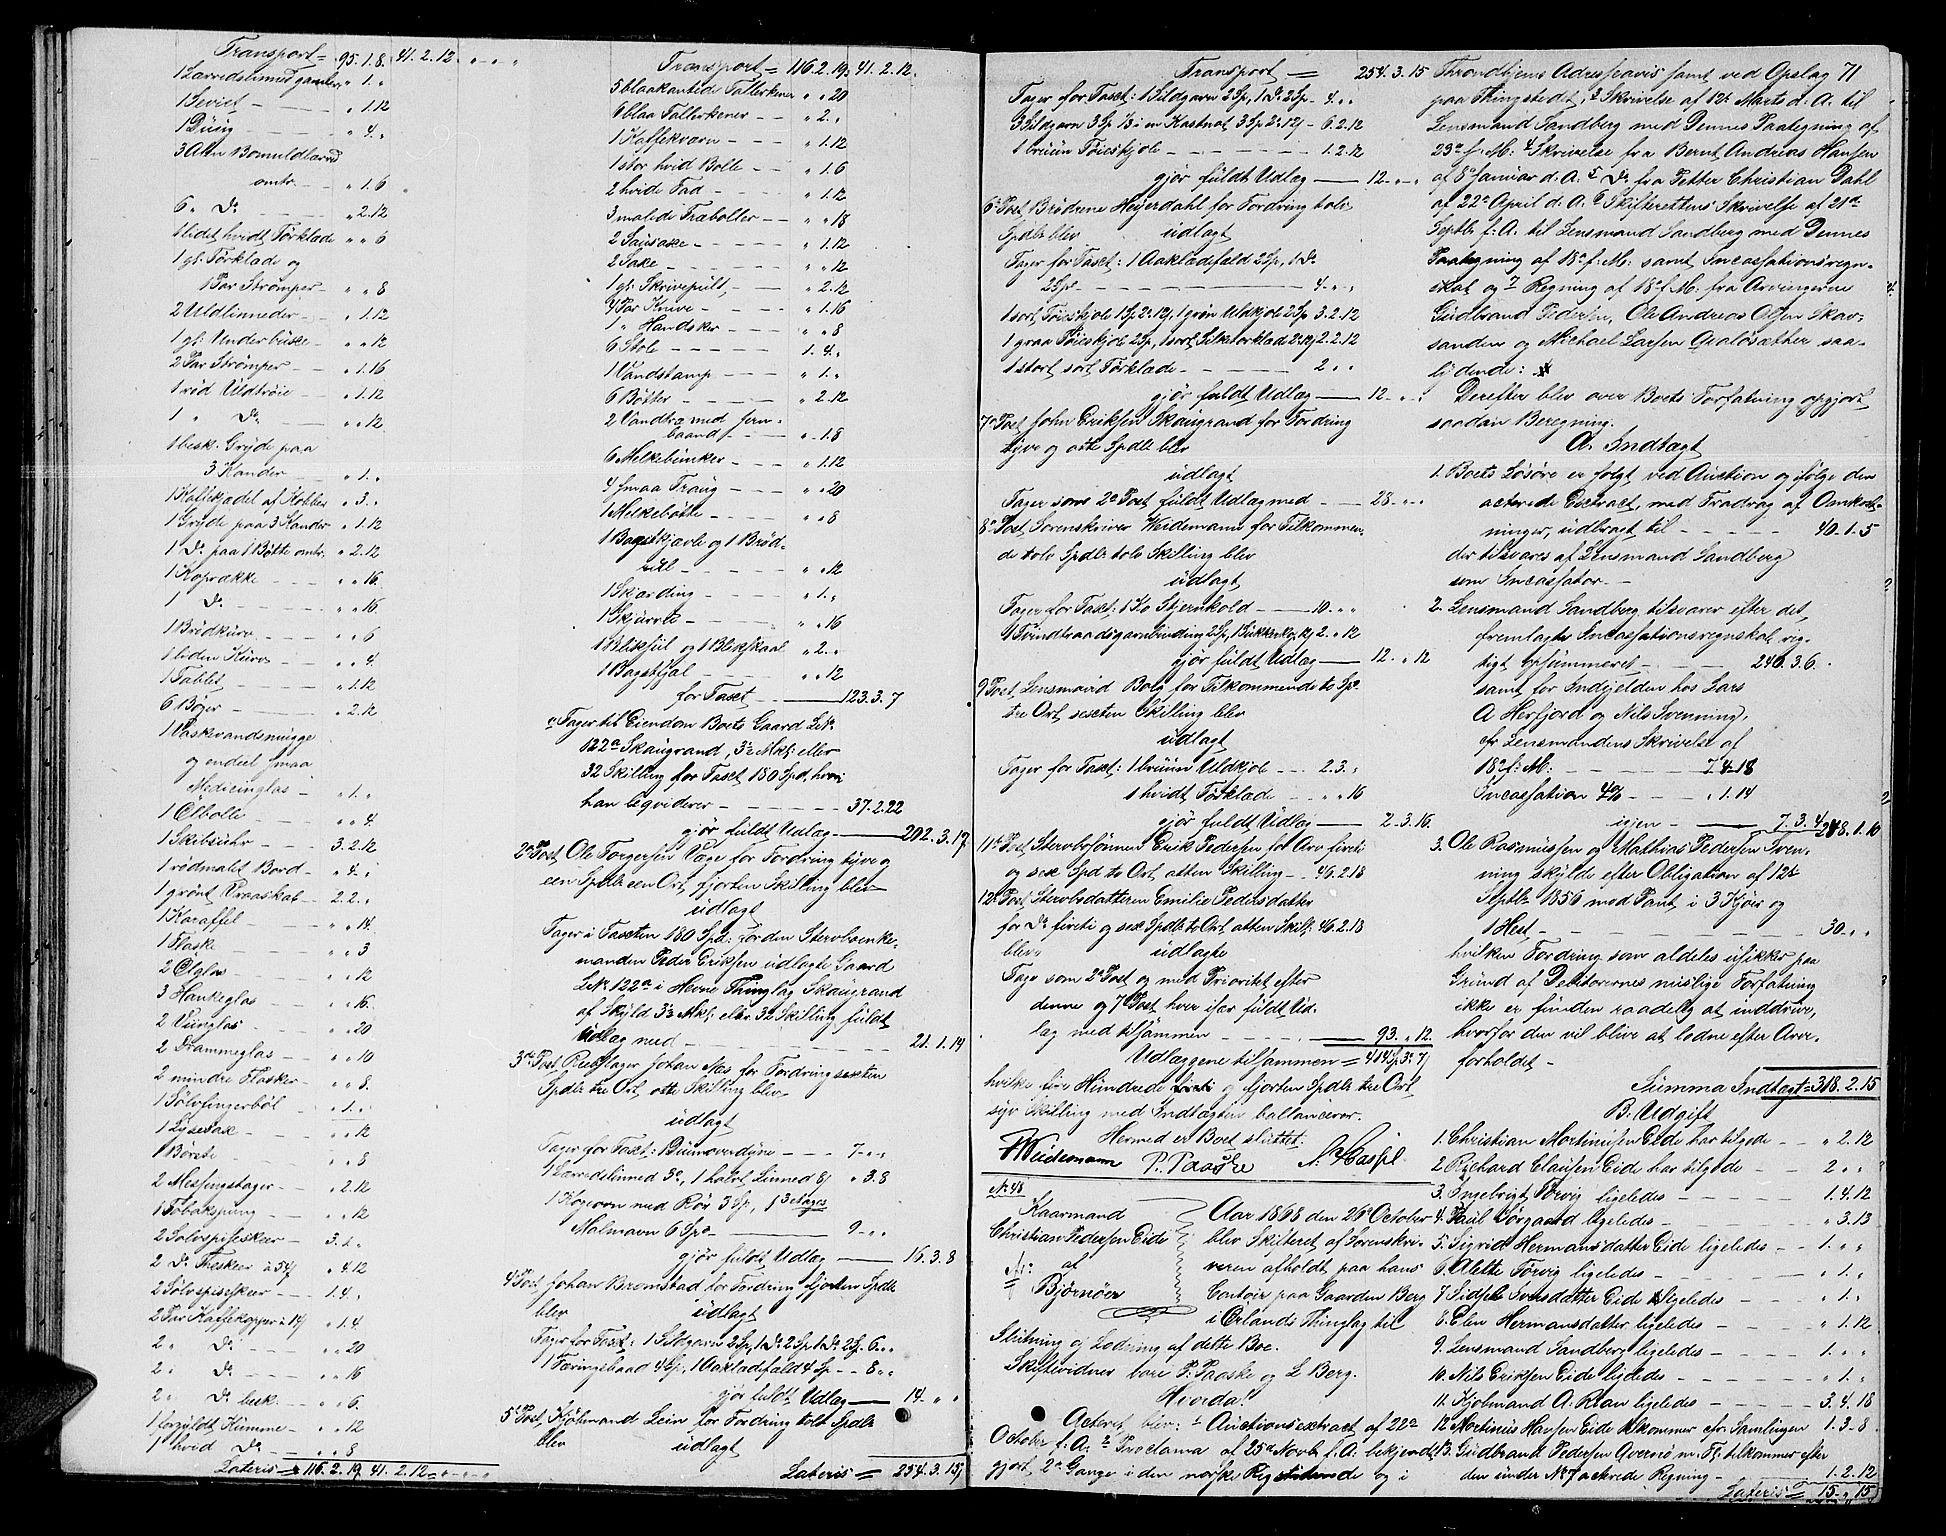 Transport = 95.1.8. 41.2.12. " " "
1 Lærredslinned gamler " 1. "
1 Seviet - " 1.12
1 Dug - " 4. "
3 Alen Bomuldlærred
omtr. - " 1.6
6 " Do - " 2.12
1 lidet hvidt Törklæde " " 6
1 gl. Törklæde og
1 Par Strömper - " " 8
2 Uldlinneder - " 1.12
1 gl. Underbuxe - " " 12
2 Par Strömper - " 1.16
1 röd Uldtröie - " 1.12
1 " Do - " " 12
1 besk. Gryde paa
3 Kander - " 1. "
1 Kaffekjedel af Kobber " 3. "
1 Gryde paa 3 Kander " 1.12
1 Do paa 1 Bötte omtr. " 2.12
1 Koprække - " " 16.
1 Do - " " 16
1 Brödkurv - " " 6
1 liden Kurv - " " 4.
1 Tablet - " 1.12
6 Böger - " 2.12
1 Vaskevandsmugge
og endeel smaa
Medicinglas - " 1. "
1 Ölbolle - " " 4.
1 Skibsuhr - 3.2.12
1 rödmalet Bord - " 4. "
1 grönt Vraaskab - 2.2. "
1 Karaffel - " " 14.
1 Flaske - " " 3
2 Ölglas - " " 12
3 Hankeglas - " " 16.
2 Viinglas - " " 20
2 Drammeglas - " " 10
2 mindre Flasker - " " 8.
1 Sölvfingerböl - " 1. "
1 Lysesax - " " 12
1 Börste - " " 8
2 Messingstager - " 2.12
1 Tobakspung - " " 12
2 Sölvspiseskeer - 3. 1. "
2 Do Theskeer à 54 β " 4.12
2 Sölvspiseskeer - 1.4. "
2 Par Kaffekopper à 14 " 1.4.
2 " Do - " " 20
2 " Do - " " 16
2 " Do besk. - " " 6.
1 forgyldt Kumme - " " 12
1 hvid Do - " " 8
Lateris = 116.2.19. 41.2.12 = " " "
Transport = 116.2.19. 41.2.12.
5 blaakantede Tallerkener " " 20
6 blaa Tallerkener - " 2. "
1 Kaffekværn - " 1.12
1 stor hvid Bolle - " 1.6
2 hvide Fad - " 1.12
3 malede Træboller - " " 18
2 Sausaxe - " 1.12
2 Saxe - " " 12
1 gl. Skrivepult, - " 2.12
4 Par Knive - " 1.16
1 " Handsker - " " 8
6 Stole - 1.4. "
1 Vandstamp - " 1. "
6 Bötter - " 2.12
2 Vandtræ med Jern-
baand - " 1.8
6 Melkebunker - " 1.12
4 smaa Traug - " " 20
1 Melkebötte - " " 8
1 Bagekjævle og 1 Bröd-
- " " 12
1 Skjærding - " 1. "
1 - " " 16
1 Bliksiil og 1 Blikskaal " 2. "
1 Bagefjæl - " " 12
for Taxt - 123.3.7
Tager til Eiendom Boets Gaard L.No
122a Skaugrand, 3½ Mkl: eller
32 Skilling for Taxt 180 Spd, hvori
han liqviderer - 37.2.22
gjör fuldt Udlæg - 202.3.17
2. Post, Ole Torgersen Vage for Fordring tyve og
een Spdlr een Ort, fjorten Skilling blev
udlagt
Tager i Taxten 180 Spd: for den Stervboenke-
manden Peder Eriksen udlagte Gaard
L.No 122a i Hevne Thinglag Skaugrand
af Skyld 3½ Mkl: eller 32 Skilling fuldt
Udlæg med - 21.1.14
3die Post, Rebslager Johan Næs for Fordring sexten
Spdlr tre Ort, otte Skilling blev
udlagt
Tager for Taxt: 1 Duunoverdyne - 7. " "
4 Lærredslinned 3o, 1 halvt Linned 8β " 3.8
1 Kogeovn med Rör 3 Sp, 1 3 etages
Malmovn 6 Spo - 9. " "
gjör fuldt Udlæg - 16.3.8
4. Post Johan Bromstad for Fordring fjorten Spdlr
blev udlagt
Tager for Taxt: 1 Sildgarn 2 Sp, 1 Do 2 Sp 1 Do 2 Sp. 6. " "
1 Færingsbaad 4 Sp, 1 Aaklædfæld 4 Sp - 8 " "
gjör fuldt Udlæg - 14. " "
5. Post, Kjöbmand Lein for Fordring tolv Spdlr
blev udlagt
Lateris = 254.3.15
Transport = 254.3.15
Tager for Taxt: 1 Sildgarn 2 Sp, 1 Do 2 Sp - 4. " "
3 Sildgarn 3 Sp, 1/3 i en Kastnot 3 Sp 2o 12β - 6.2.12
1 bruun Töieskjole - 1.2.12
gjör fuldt Udlæg - 12. " "
6. Post, Brödrene Heyerdahl for Fordring tolv
Spdlr blev udlagt
Tager for Taxt: 1 Aaklædefæld 2 Sp, 1 Do
2 Spo - 4. " "
1 sort Töieskjole 1 Sp 2o 12β, 1 grön Uldkjole 2 Sp 3.2.12
1 graa Töieskjole 2 Sp, 1 sort Silketörklæd 2o 12β 2.2.12
1 stort sort Törklæde - 2 " "
gjör fuldt Udlæg - 12. " "
7. Post John Eriksen Skaugrand for Fordring
tyve og otte Spdlr blev
udlagt
Tager som 2. Post fuldt Udlæg med - 28. " "
8. Post Sorenskriver Weidemann for Tilkommen-
de tolv Spdlr tolv Skilling blev
udlagt
Tager for Taxt: 1 Ko Stjernkold - 10. " "
4 Tvindtraadsgarnbinding 2 Sp, 1 12β 2. " 12
gjör fuldt Udlæg - 12. " 12
9 Post, Lensmand Bolg for Tilkommende to Spo
tre Ort, sexten Skilling blev
udlagt
Tager for Taxt: 1 bruun Uldkjole - 2.3. "
1 hvidt Törklæde " " 16
gjör fuldt Udlæg - 2.3.16.
11te Post, Stervbosönnen Erik Pedersen for Arv firti
og sex Spd to Ort, atten Skilling - 46.2.18
12. Post Stervbodatteren Emilie Pedersdatter
for Do firti og sex Spdlr to Ort atten Skill: 46.2.18
blev udlagte
Tage som 2. Post og med Prioritet efter
denne og 7. Post hver især fuldt Ud-
læg med tilsammen - 93. " 12.
Udlæggene tilsammen = 414 Sp 3o 7β
hvilke fire Hundrede og fjorten Spdlr tre Ort
syv Skilling med Indtægten ballancerer.
Hermed er Boet sluttet.
Weidemann P. Paaske N. Hassel
No 48
Kaarmand
Christian Pedersen Eide
af
Björnöer
Aar 1868 den 26. October
blev Skifteret af Sorenskri-
veren afholdt paa hans
Contoir paa Gaarden Berg
i Örlands Thinglag til
Slutning og Lodning af dette Boe.
Skiftevidner vare P. Paaske og L Berg.
Hvorda!!
Acteret blev: 1 Auctionsextract af 22a
October f.A. 2 Proclama af 25a Novb. f.A. bekjendt-
gjort 2a Gange i den norske Rigstidende og i
Throndhjems Adresseavis samt ved Opslag 71
paa Thingstedet, 3 Skrivelse af 12te Marts d. A. til
Lensmand Sandberg med Dennes Paategning af
23a f. M: 4 Skrivelse fra Bernt Andreas Hansen
af 8. Januar d. A. 5 Do fra Petter Christian Dahl
af 22a April d. A. 6 Skifterettens Skrivelse af 21de
Septbr f. A. til Lensmand Sandberg med Dennes
Paategning af 18. f. M: samt Incassationsregn-
skab og 7 Regning af 18. f. M. fra Arvingerne
Gudbrand Pedersen, Ole Andreas Olsen Skav-
sanden og Michael Larsen Qvalösæther saa-
lydende:
Derefter blev over Boets Forfatning opgjort
saadan Beregning.
A. Indtægt
1. Boets Lösöre er solgt ved Auction og ifölge den
acterede Extract, med Fradrag af Omkost-
ninger, udbragt til - 40.1.5
der tilsvares af Lensmand Sandberg
som Incassator. -
2. Lensmand Sandberg tilsvarer efter det
fremlagte Incassationsregnskab rig-
tigt opsummeret - 240.3.6.
samt for Indgjelden hos Lars
A Herfjord og Nils Svenning,
cfr Lensmandens Skrivelse af
18. f. M: - 7.4.18
Incassation 4% - " 1.14
igjen - 7.3.4. 248.1.10
3. Ole Rasmussen og Mathias Pedersen Sven-
ning skylde efter Obligation af 12te
Septbr 1856 med Pant i 3 Kjöer og
1 Hest - 30. " "
hvilken Fordring som aldeles usikker paa
Grund af Debitorernes mislige Forfatning
ikke er funden raadelig at inddrive,
hvorfor den vil blive at lodne efter Arve-
forholdet -
Summa Indtægt = 318.2.15
B. Udgift
1. Christian Martinussen Eide har tilgode - " 2.12
2 Richard Clausen Eide har tilgode - 2 " "
3. Ingebrigt Tørvig ligeledes - 1.4.12
4. Paul Sörgaard ligeledes - " 3.13
5. Sigrid Hermansdatter Eide ligeledes - 1. " "
6. Alette Törvig ligeledes - " 1. "
7 Sidsel Iversdatter Eide ligeledes - " 1. "
8. Elen Hermansdatter ligeledes - " 1.12
9. Lensmand Sandberg ligeledes - 1. " "
10. Nils Eriksen Eide ligeledes - " 1. "
11. Kjöbmand A. Kran ligeledes - 3.4.18
12 Martinus Hansen Eide tilkommer cfr Samlingen 1.3.8.
13. Gudbrand Pedersen Qvernö m. Fl. tilkommer efter
den under No 7 acterede Regning - 1.2.12
Lateris = 15. " 15